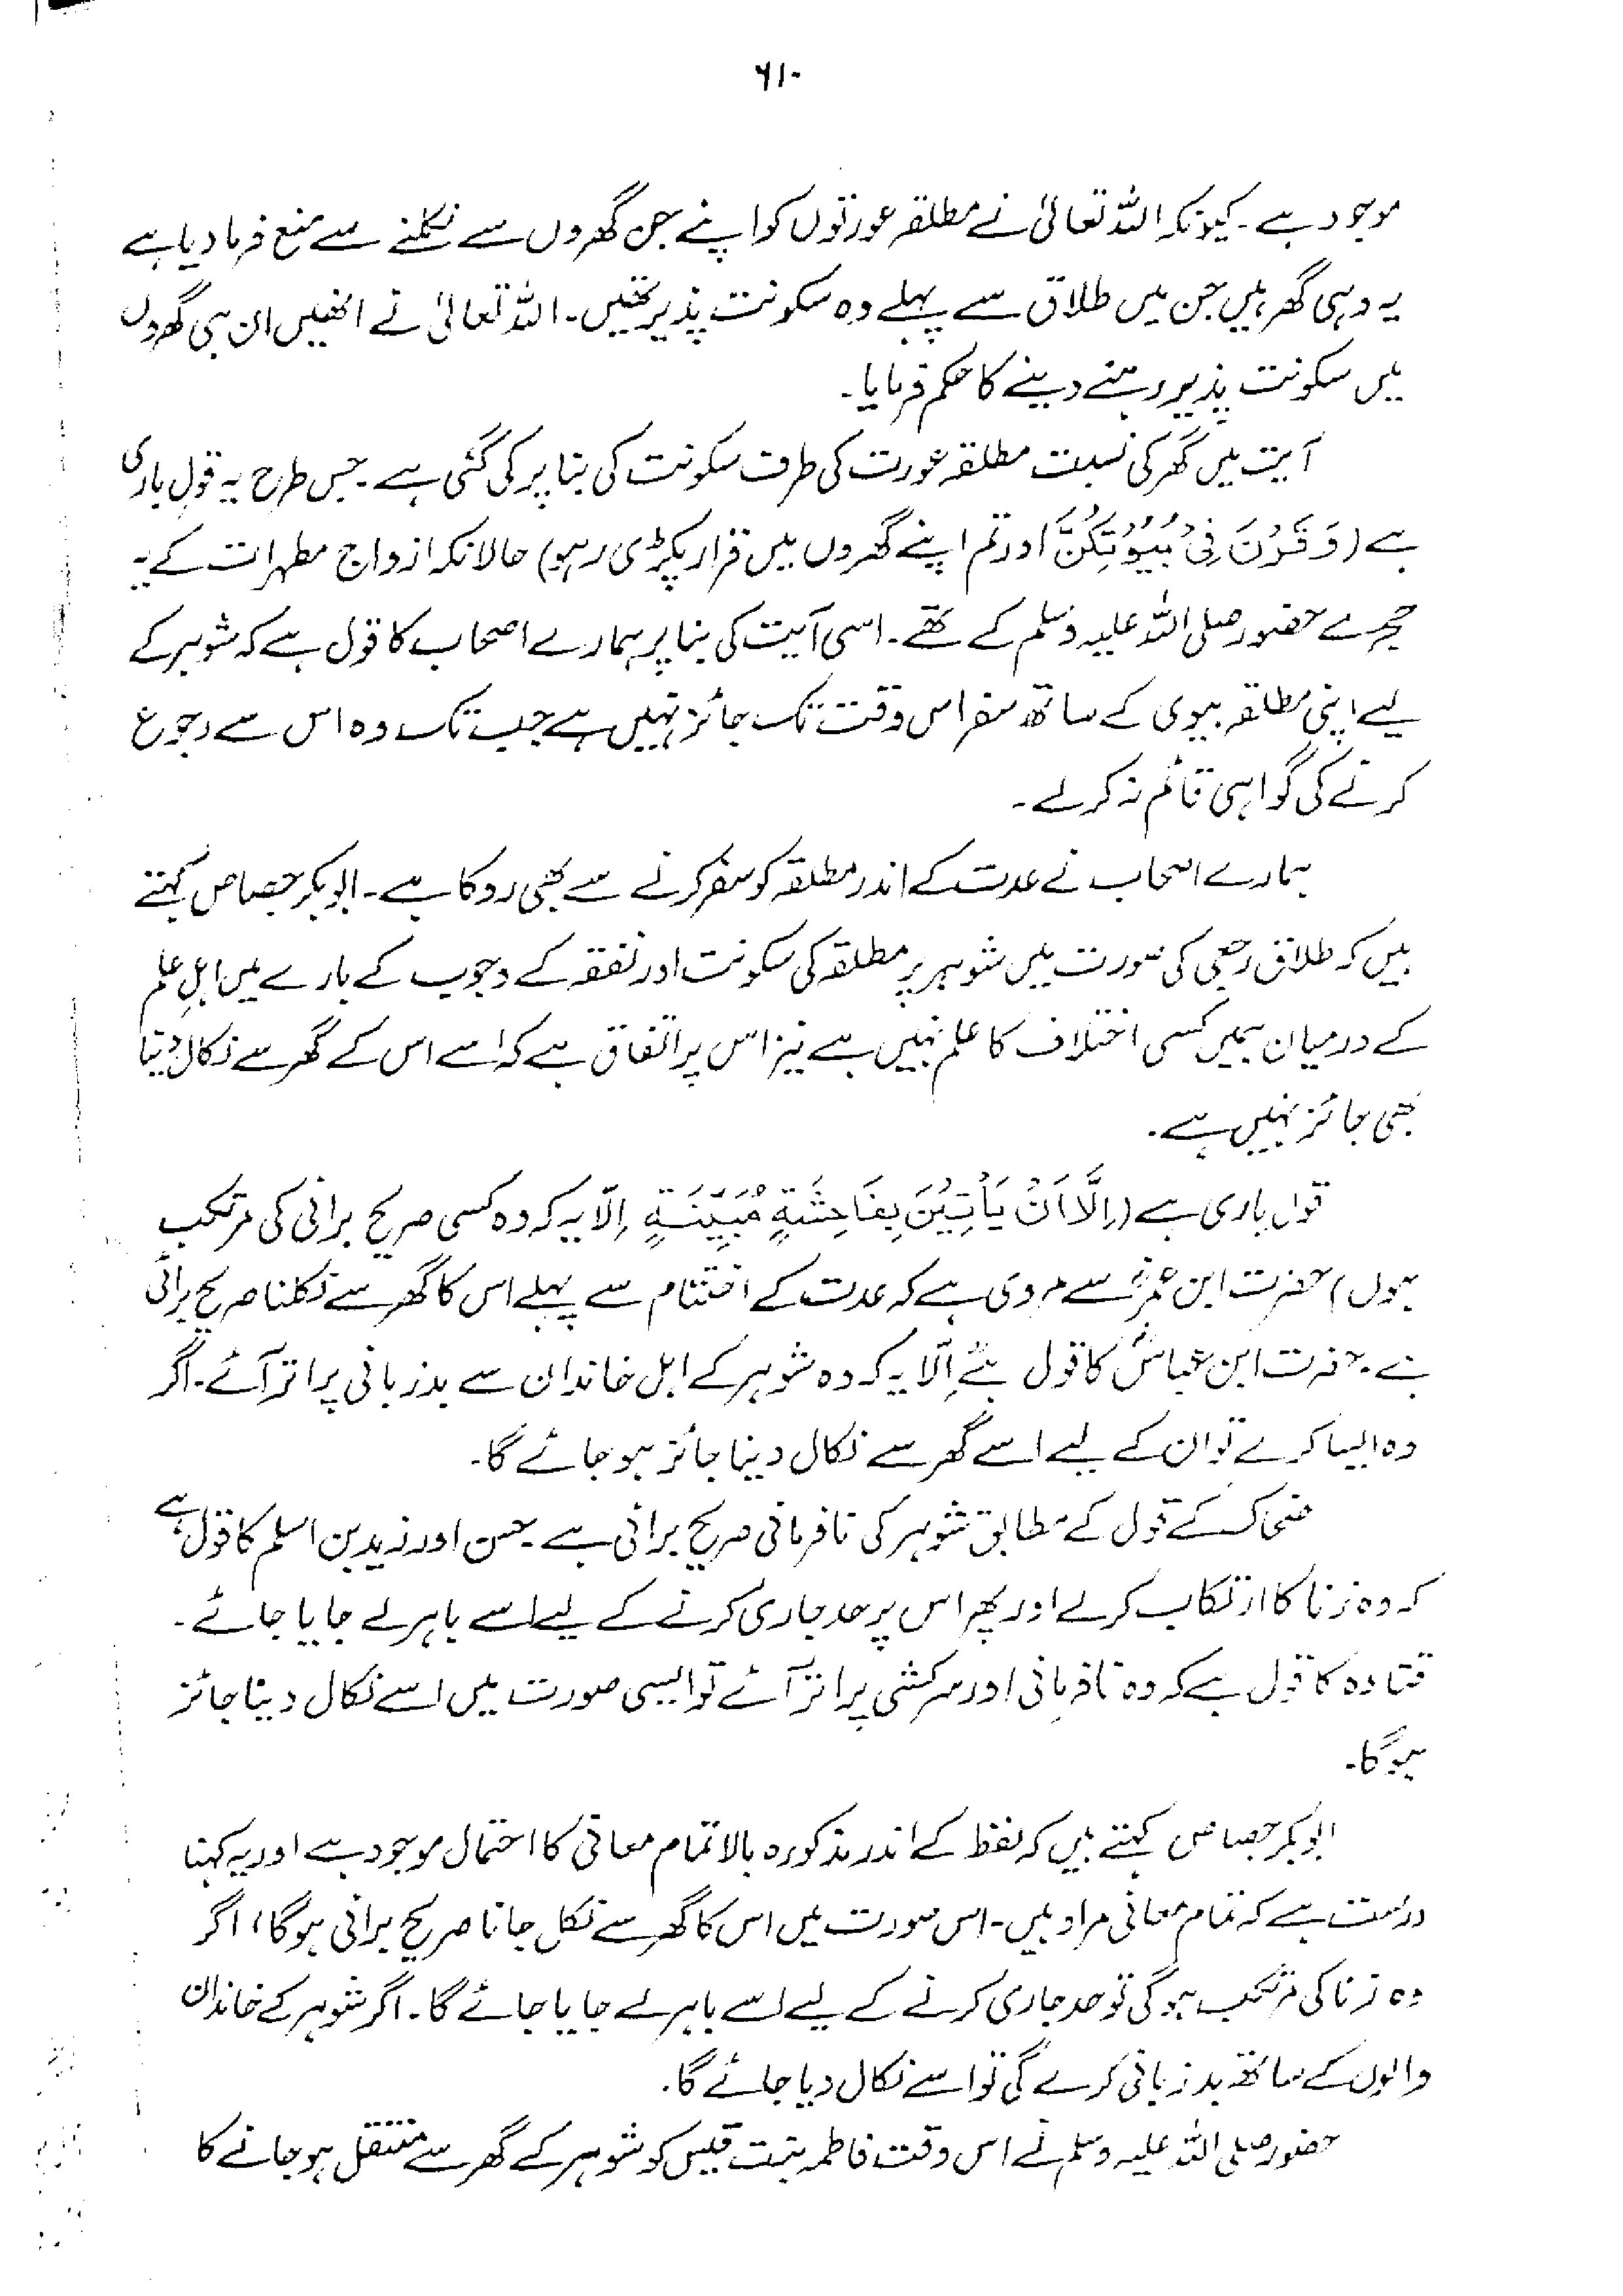 ۶۱۰
موجود ہے۔ کیونکہ اللہ تعالیٰ نے مطلقہ عورتوں کو اپنے جن گھروں سے نکلنے سے منع فرما دیا ہے
یہ وہی گھر ہیں جن میں طلاق سے پہلے وہ سکونت پذیر تھیں۔ اللہ تعالیٰ نے انھیں ان ہی گھروں
میں سکونت پذیر رہنے دینے کا حکم فرمایا۔
آیت میں گھر کی نسبت مطلقہ عورت کی طرف سکونت کی بنا پر کی گئی ہے۔ جس طرح یہ قولِ باری
ہے (وَقَرْنَ فِیْ بُیُوْتِکُنَّ اور تم اپنے گھروں میں قرار پکڑی رہو) حالانکہ ازواج مطہرات کے یہ
حجرے حضور صلی اللہ علیہ وسلم کے تھے۔ اسی آیت کی بنا پر ہمارے اصحاب کا قول ہے کہ شوہر کے
لیے اپنی مطلقہ بیوی کے ساتھ سفر اس وقت تک جائز نہیں ہے جب تک وہ اس سے رجوع
کرنے کی گواہی قائم نہ کرلے۔
ہمارے اصحاب نے عدت کے اندر مطلقہ کو سفر کرنے سے بھی روکا ہے۔ ابوبکر جصاص کہتے
ہیں کہ طلاق رجعی کی صورت میں شوہر پر مطلقہ کی سکونت اور نفقہ کے وجوب کے بارے میں اہلِ علم
کے درمیان ہمیں کسی اختلاف کا علم نہیں ہے نیز اس پر اتفاق ہے کہ اسے اس کے گھر سے نکال دینا
بھی جائز نہیں ہے۔
قول باری ہے (اِلَّا اَنْ یَاْتِیْنَ بِفَاحِشَةٍ مُّبَیِّنَةٍ اِلّا یہ کہ وہ کسی صریح برائی کی مرتکب
ہوں) حضرت ابن عمرؓ سے مروی ہے کہ عدت کے اختتام سے پہلے اس کا گھر سے نکلنا صریح برائی
ہے۔ حضرت ابن عباسؓ کا قول ہے اِلّا یہ کہ وہ شوہر کے اہل خاندان سے بدزبانی پر اتر آئے۔ اگر
وہ ایسا کرے تو ان کے لیے اسے گھر سے نکال دینا جائز ہو جائے گا۔
ضحاک کے قول کے مطابق شوہر کی نافرمانی صریح برائی ہے۔ حسن اور زید بن اسلم کا قول ہے
کہ وہ زنا کا ارتکاب کرلے اور پھر اس پر حد جاری کرنے کے لیے اسے باہر لے جایا جائے۔
قتادہ کا قول ہے کہ وہ نافرمانی اور سرکشی پر اتر آئے تو ایسی صورت میں اسے نکال دینا جائز
ہوگا۔
ابوبکر جصاص کہتے ہیں کہ لفظ کے اندر مذکورہ بالا تمام معانی کا احتمال موجود ہے اور یہ کہنا
درست ہے کہ تمام معانی مراد ہیں۔ اس صورت میں اس کا گھر سے نکل جانا صریح برائی ہوگا، اگر
وہ زنا کی مرتکب ہوگی تو حد جاری کرنے کے لیے اسے باہر لے جایا جائے گا۔ اگر شوہر کے خاندان
والوں کے ساتھ بدزبانی کرے گی تو اسے نکال دیا جائے گا۔
حضور صلی اللہ علیہ وسلم نے اس وقت فاطمہ بنت قیس کو شوہر کے گھر سے منتقل ہو جانے کا